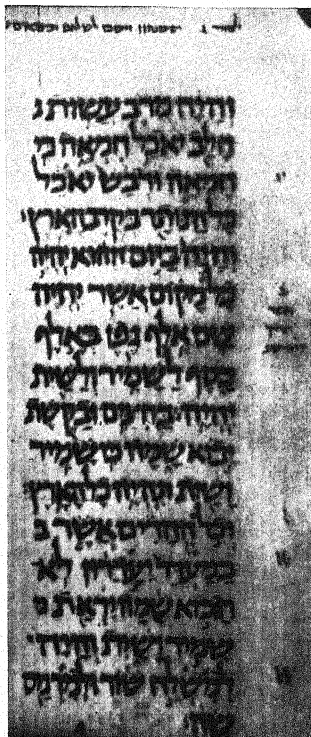 והיה מרב עשות
חלב יאכל חמאה כי
חמאה ודבש יאכל
כל הנותר בקרב הארץ
והיה ביום ההוא יהיה
כל מקום אשר יהיה
שם אלף גפן באלף
כסף לשמיר ולשית
יהיה בחצים ובקשת
יבא שמה כי שמיר
ושית תהיה כל הארץ
וכל ההרים אשר ב
במעדר יעדרון לא
תבוא שמה יראת
שמיר ושית והיה
למשלח שור ולמרמס
שה